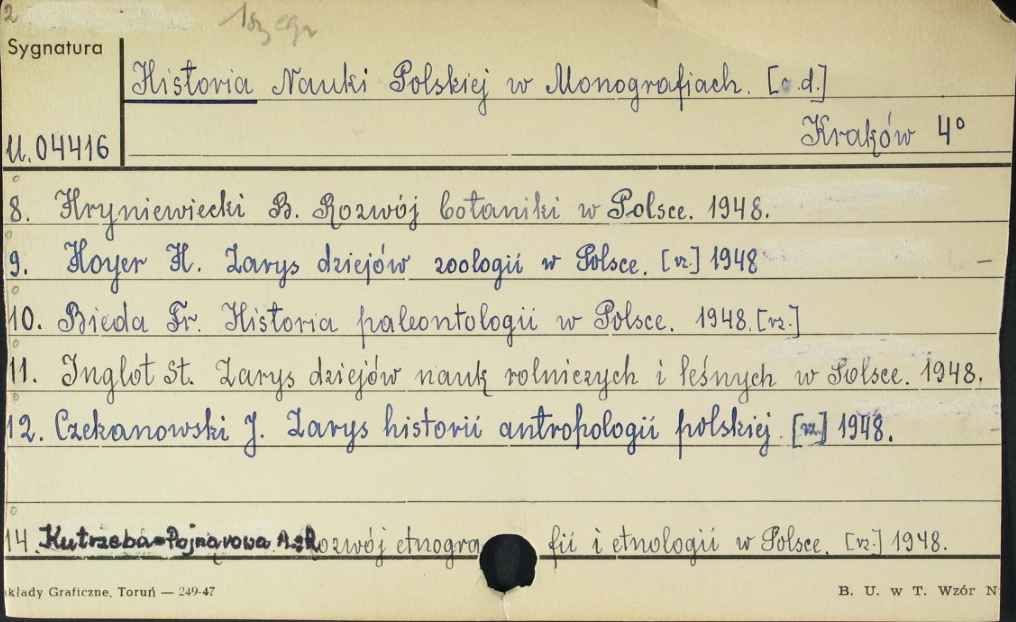 2 1szy egz
Sygnatura
Historia Nauki Polskiej w Monografiach. [c.d.]
Kraków 4°
U.04416
8. Hryniewiecki B. Rozwój botaniki w Polsce. 1948.
9. Hoyer H. Zarys dziejów zoologii w Polsce. [rz.] 1948 –
10. Bieda Fr. Historia paleontologii w Polsce. 1948. [rz.]
11. Inglot St. Zarys dziejów nauk rolniczych i leśnych w Polsce. 1948.
12. Czekanowski J. Zarys historii antropologii polskiej. [rz.] 1948.
14. Kutrzeba-Pojnarowa A. Rozwój etnografii i etnologii w Polsce. [rz.] 1948.
kłady Graficzne, Toruń — 249-47 B. U. w T. Wzór N